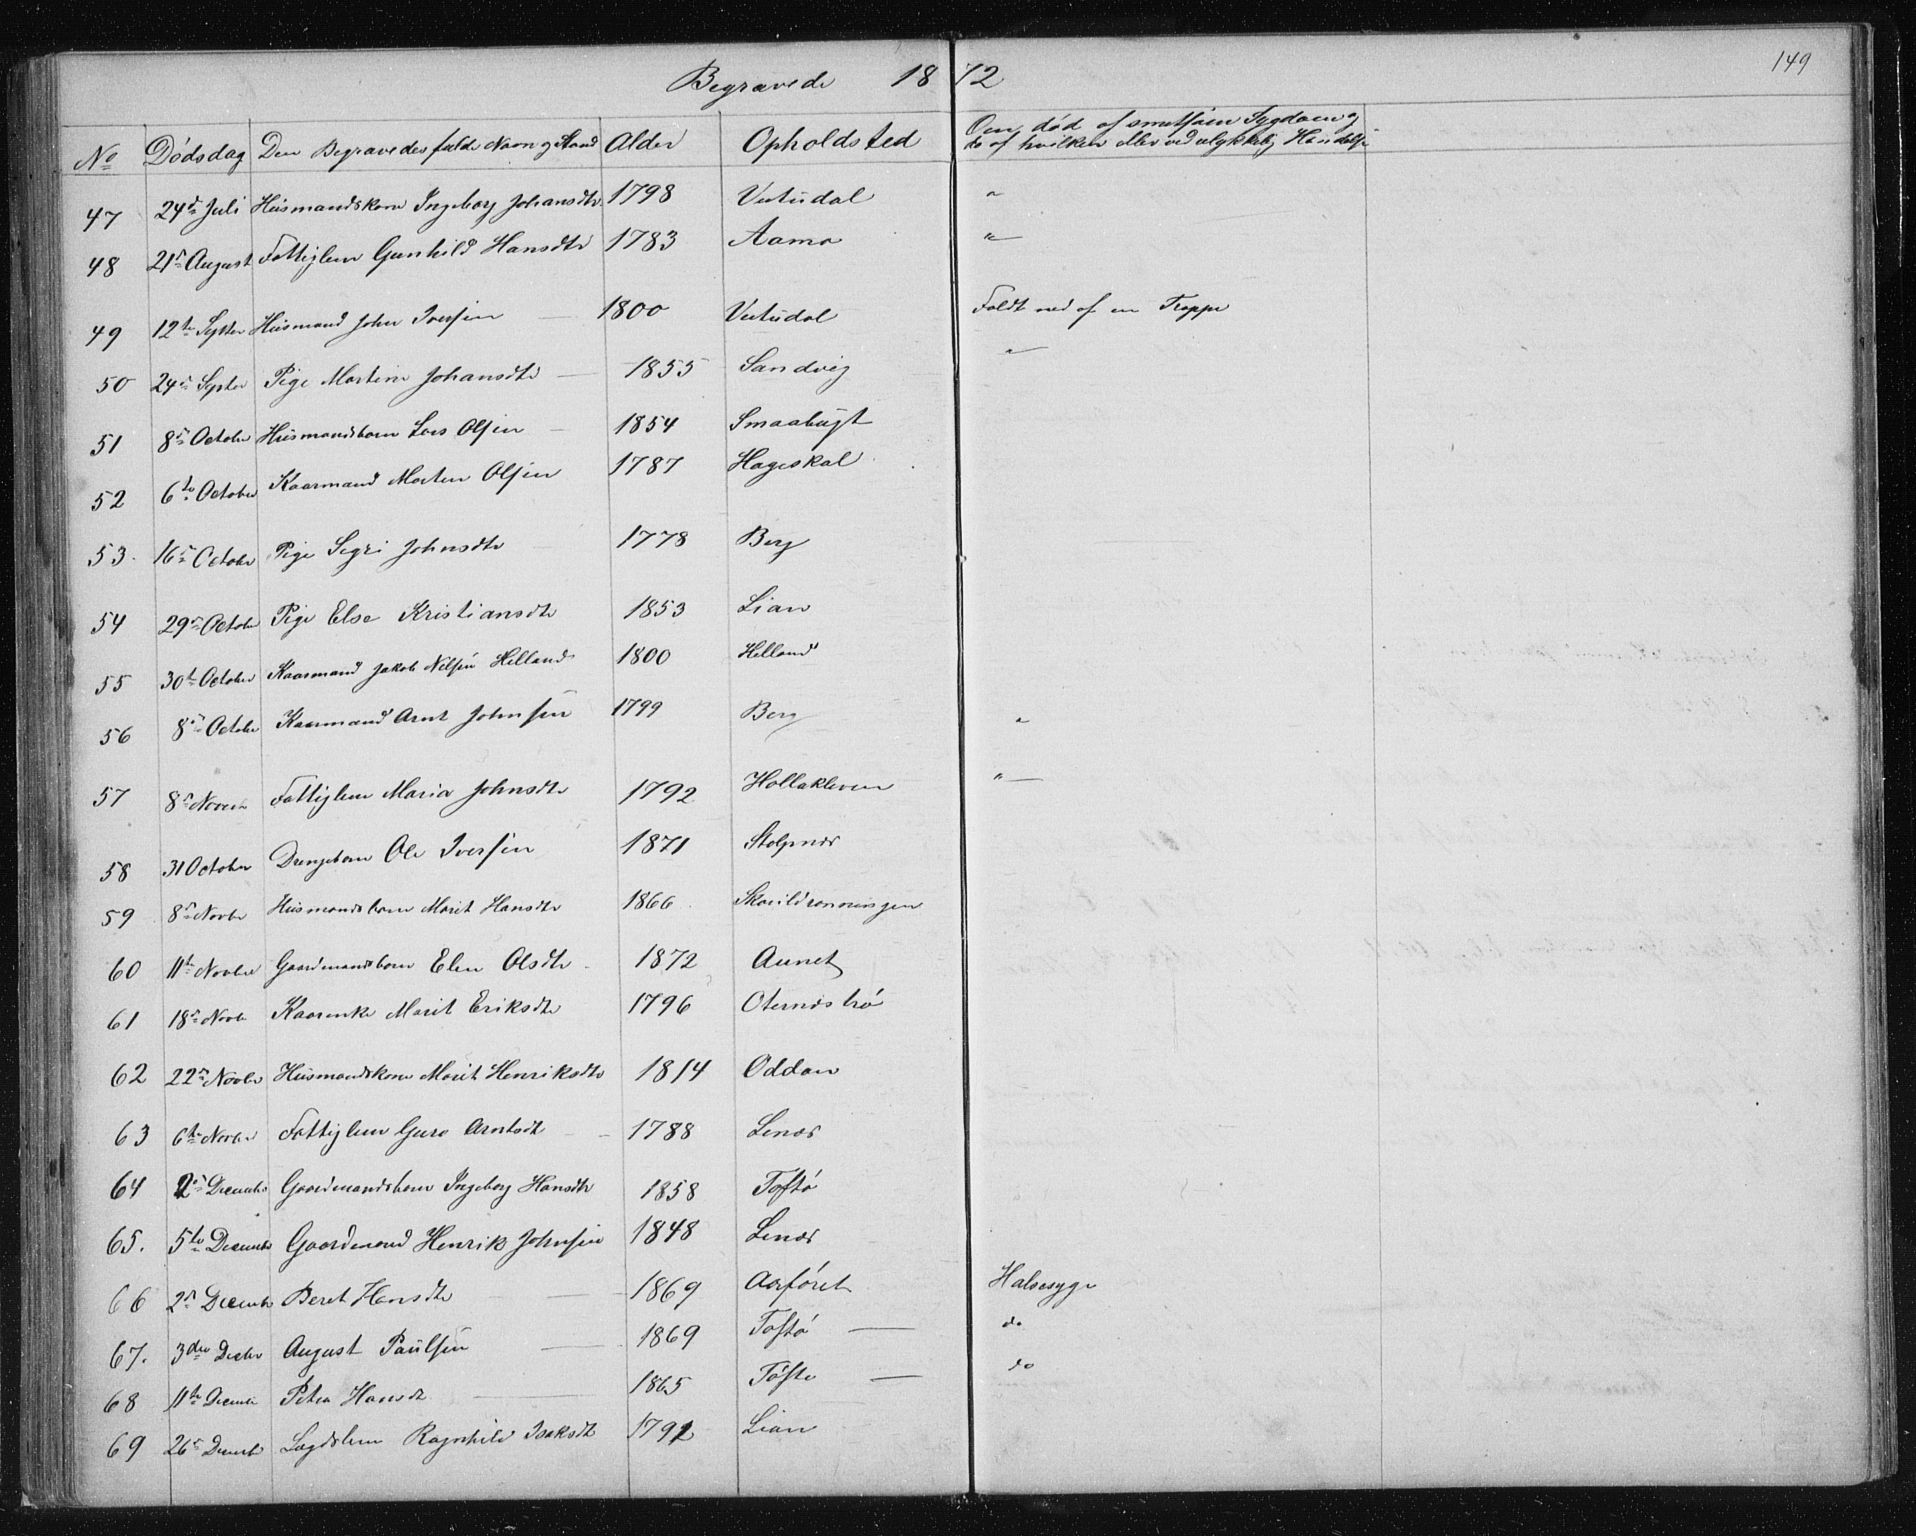 149
Begravede 1872
No Dödsdag Den Begravedes fulde Navn og Stand Alder Opholdsted Om død af smitsom Sygdom og
da af hvilken eller ved ulykkelig Hændelse
47 24de Juli Huusmandskone Ingeborg Johansdtr 1798 Vutudal "
48 21de August Fattiglem Gunhild Hansdtr 1783 Aamo "
49 12te Septbr Huusmand John Iversen 1800 Vutudal Faldt ned af en Trappe
50 24de Septbr Pige Martine Johansdtr 1855 Sandvig "
51 8de October Huusmandsbarn Lars Olsen 1854 Smaabugt
52 6te October Kaarmand Morten Olsen 1787 Hageskal
53. 16de October Pige Segri Johnsdtr 1778 Berg
54 29de October Pige Else Kristiansdtr 1853 Lian
55 30te October Kaarmand Jakob Nilsen Helland 1800 Helland
56 8de October Kaarmand Arnt Johnsen 1799 Berg "
57 8de Novbr Fattiglem Maria Johnsdtr 1792 Hollakleven "
58 31 October Drengebarn Ole Iversen 1871 Stolpnes
59 8de Novbr Huusmandsbarn Marit Hansdtr 1866 Skarildrønningen
60 11te Novbr Gaardmandsbarn Elen Olsdtr 1872 Aunet
61 18de Novbr Kaarenke Marit Eriksdtr 1796 Oternestrø
62 22de Novbr Huusmandskone Marit Henriksdtr 1814 Oddan
63 6te Novbr Fattiglem Guro Arntsdtr 1788 Lenes
64 2de Decembr Gaardmandsbarn Ingeborg Hansdtr 1858 Toftö
65. 5te Decembr Gaardmand Henrik Johnsen 1848 Lenes
66 2de Decembr Beret Hansdtr 1869 Aarföret Halsesyge
67. 3die Decbr August Paulsen 1869 Toftö do
68 11te Decembr Petra Hansdtr 1865 Töfte do
69 26de Decembr Lægdslem Ragnhild Isaksdtr 1792 Lian